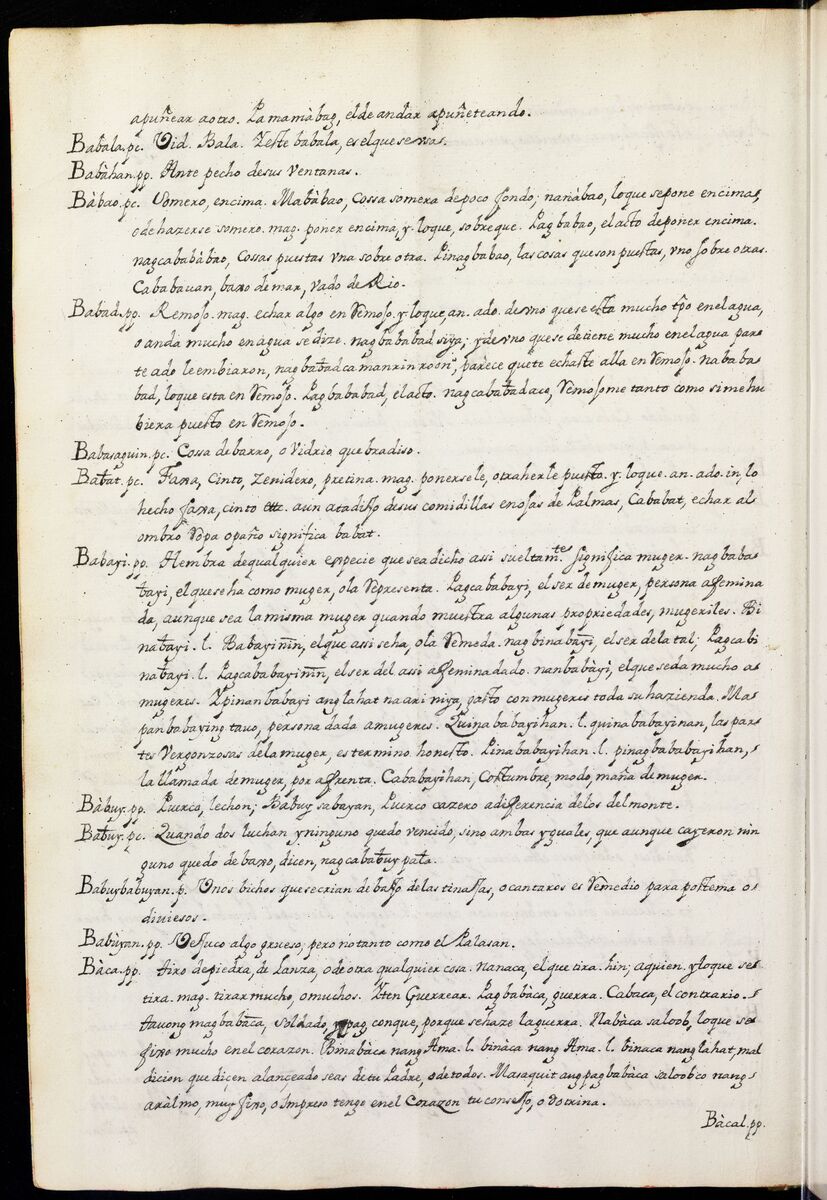 apuñear a otro. Pamamàbag, el de andar apuñeteando.
Babala. pc. Vid. Bala. Yeste babala, es el que se vsa.
Babàhan. pp. Ante pecho de sus ventanas.
Bàbao. pc. Somero, encima. Mabàbao, cossa somera de poco fondo; nanàbao, lo que se pone encima,
o de hazerse somero. mag. poner encima, y. lo que, sobre que. Pagbabao, el acto de poner encima.
nagcababàbao, cossas puestas vna sobre otra. Pinagbabao, las cosas que son puestas, vno sobre otras.
Cababauan, baxo de mar, vado de Rio.
Babad. pp. Remojo. mag. echar algo en Remojo. y. lo que, an. ado. de vno que se esta mucho tp̃o en el agua,
o anda mucho en àgua se dize. nagbababad siya; y de vno que se detiene mucho en el agua par
te ado le embiaron, nagbabadca man rin roon, parece que te echaste alla en Remojo. nababa
bad, lo que esta en Remojo. Pagbababad, el acto. nagcababadaco, Remojome tanto como si me hu
biera puesto en Remojo.
Babasaguin. pc. Cossa de barro, o vidrio quebradiso.
Babat. pc. Faxa, cinto, zenidero, pretina. mag. ponersele, o traherle puesto. y. lo que. an. ado. in, lo
hecho faxa, cinto etc. a un atadillo de sus comidillas en ojas de Palmas, Cababat, echar al
ombro Ropa o paño significa babat.
Babayi. pp. Hembra de qualquier especie que sea dicho assi sueltamte. significa muger. nagbaba
bayi, el que se ha como muger, o la Representa. Pagcababayi, el ser de muger, persona afemina
da, aunque sea la misma muger quando muestra algunas propriedades, mugeriles. Bi
nabayi. l. Babayinin, el que assi se ha, o la Remeda. nagbinabayi, el ser de la tal; Pagcabi
nabayi. l. Pagcababayinin, el ser del assi afeminadado. nanbabàyi, el que se da mucho a
mugeres. Ypinanbabayi ang lahat na ari niya, gasto con mugeres toda su hazienda. Ma
panbabaying tauo, persona dada a mugeres. Quinababayihan. l. quinababayinan, las par
tes Vergonzosas de la muger, es termino honesto. Pinababayihan. l. pinagbababàyihan,
la llamada de muger, por afrenta. Cababayihan, costumbre, modo, maña de muger.
Bàbuy. pp. Puerco, lechon; Babuy sabayan, Puerco cazero a diferencia de los del monte.
Babuy. pc. Quando dos luchan y ninguno quedo vencido, sino ambas yguales, que aunque cayeron nin
guno quedo debaxo, dicen, nagcababuy pala.
Babuybabuyan. p. Vnos bichos que se crian debajo de las tinajas, o cantaros es Remedio para postema o
diviesos.
Babùyan. pp. Vejuco algo grueso; pero no tanto como el Palasan.
Bàca. pp. tiro de piedra, de Lanza, o de otra qualquier cosa. nanaca, el que tira. hin; a quien, y lo que se
tira. mag. tirar mucho, o muchos. Yten Guerrear. Pagbabàca, guerra. Cabaca, el contrario.
tauong magbabàca, Soldado, ypag, con que, porque se haze la guerra. Nabàca saloob, lo que se
fixo mucho en el corazon. Binabàca nang Ama. l. binàca nang Ama. l. binaca nang lahat, mal
dicion que dicen alanceado seas de tu Padre, o de todos. Masaquit ang pagbabàca saloobco nang
aràlmo, muy fixo, o Impreso tengo en el Corazon tu consejo, o dotrina.
Bàcal. pp.